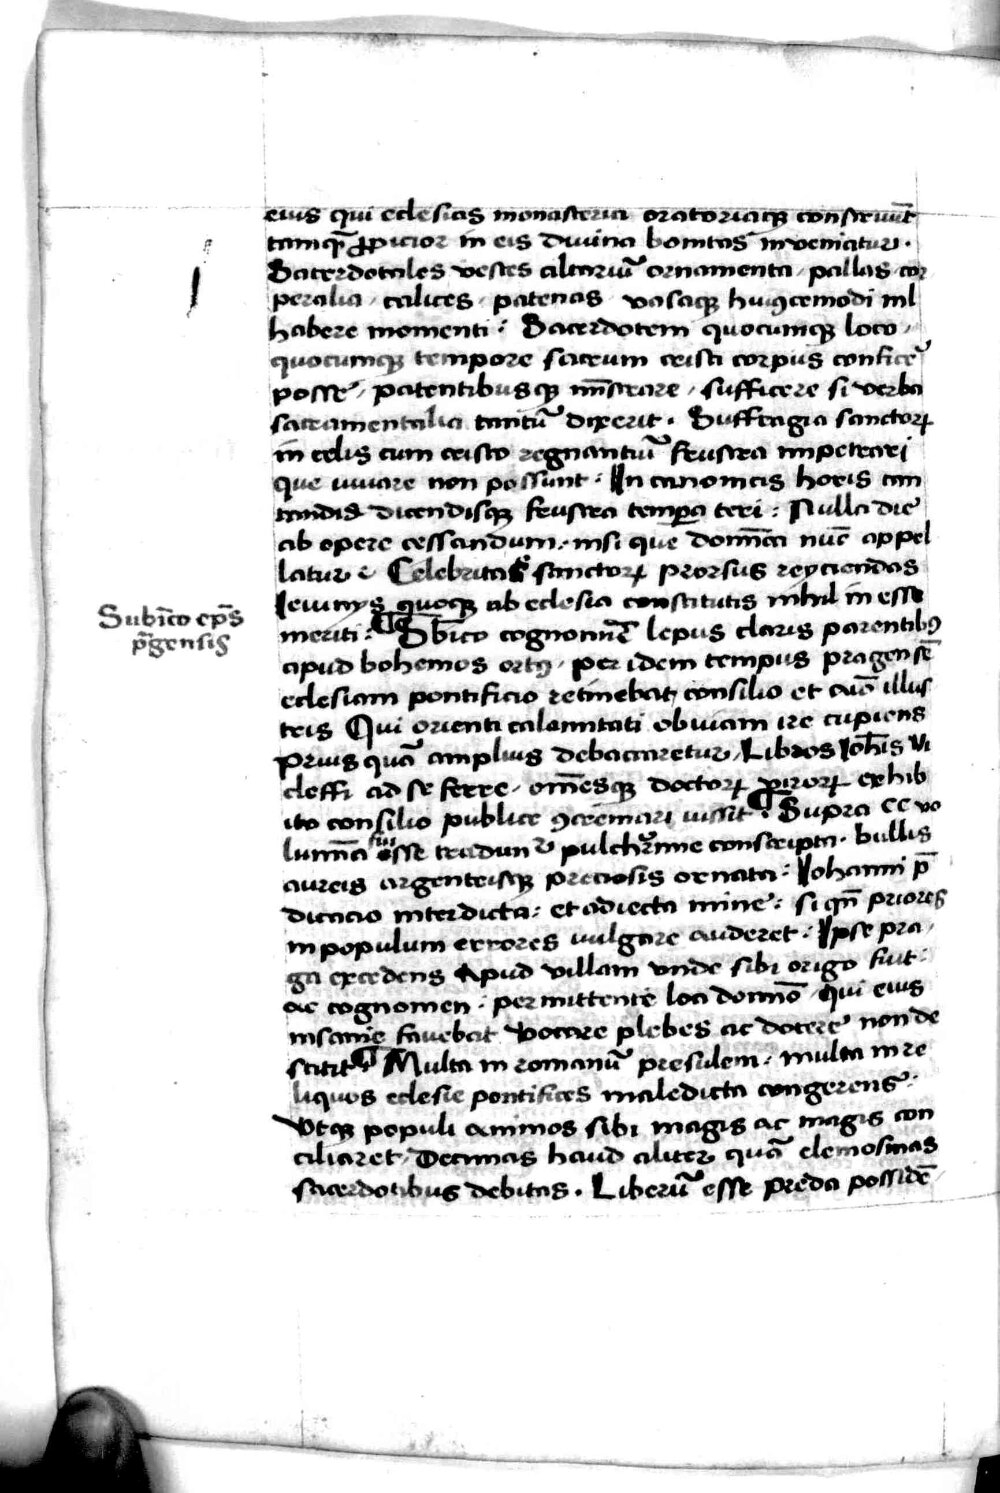 eius qui eclesias monasteria oratoriaqꝫ construūt
tamqȝ ꝓpicior in eis diuina bonitas inueniatur .
Sacerdotales vestes altariū ornamenta / pallas cor
peralia / calices / patenas vasaqꝫ huiꝯcemodi nil
habere momenti : Sacerdotem quocumqꝫ loco /
quocumqꝫ tempore sacrum cristi corpus conficē
posse / patentibusqꝫ mīstrare / sufficere si verba
sacramentalia tantū dixerit . Suffragia sanctoꝝ
in celis cum cristo regnantiū frustra impetrari
que iuuare non possunt : In canonicis horis can
tandis dicendisqꝫ frustra tempꝰa teri : Nulla die
ab opere cessandum . nisi que domīca nūc appel
latur : Celebritates sanctoꝝ prorsus reyciendas
Ieiunys quoqꝫ ab eclesia constitutis nihil in esse
meriti : Sbīco cognomīe lepus claris parentibꝰ
apud bohemos ortꝰ / per idem tempus pragensē
eclesiam pontificio retinebat consilio et auō illus
tris Qui orienti calamitati obuiam ire cupiens
prius quā amplius debacaretur / Libros Ioh̄is vi
cleffi ad se ferre / om̄esqꝫ doctoꝝ viroꝝ exhib
ito consilio publice ꝯcremari iussit . Supra CC vo
lumīa fuisse tradunt̉ pulchrime conscripta . bullis
aureis argenteisqꝫ preciosis ornata : Iohanni p̄
dicacio interdicta : et adiecta mine : si qn̄ priores
in populum errores uulgare auderet : Ipse pra /
ga excedens Apud villam vnde sibi origo fuit :
ac cognomen : permittente loci domīo / qui eius
insanie fauebat vocare plebes ac docere non de
stitit Multa in romanū presulem . multa in re
liquos eclesie pontifices maledicta congerens .
Vtqꝫ populi animos sibi magis ac magis con
ciliaret / Decimas haud aliter quā elemosinas
sacerdotibus debitas . Liberū esse preda possidē
Subīco ep̄s
p̄gensis